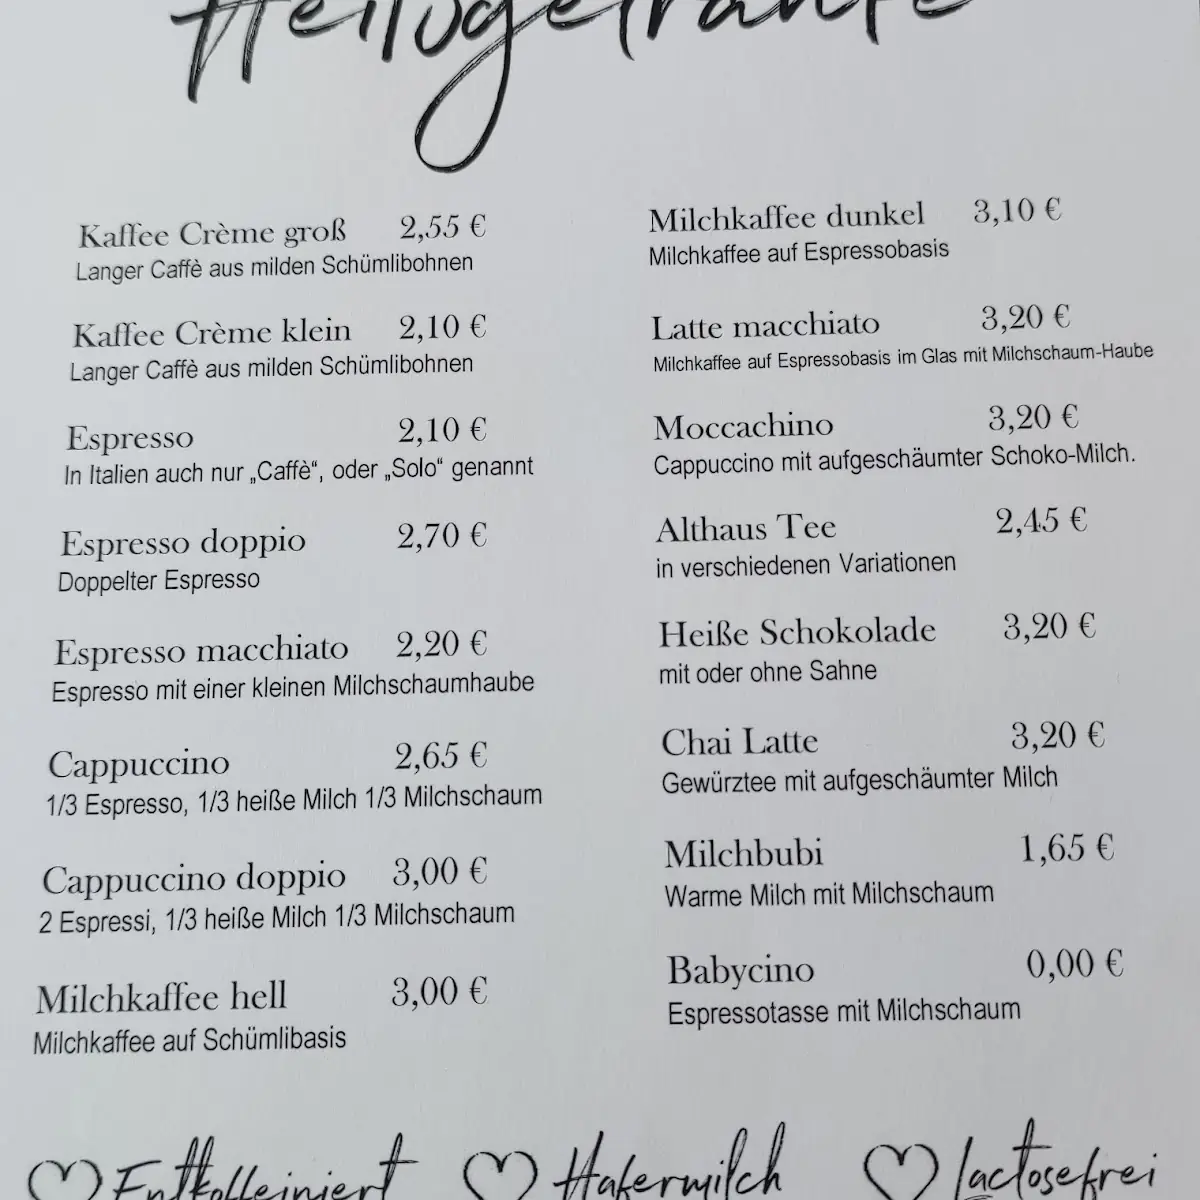 Heißgetränke
Kaffee Crème groß 2,55 €
Langer Caffè aus milden Schümlibohnen
Kaffee Crème klein 2,10 €
Langer Caffè aus milden Schümlibohnen
Espresso 2,10 €
In Italien auch nur „Caffè“, oder „Solo“ genannt
Espresso doppio 2,70 €
Doppelter Espresso
Espresso macchiato 2,20 €
Espresso mit einer kleinen Milchschaumhaube
Cappuccino 2,65 €
1/3 Espresso, 1/3 heiße Milch 1/3 Milchschaum
Cappuccino doppio 3,00 €
2 Espressi, 1/3 heiße Milch 1/3 Milchschaum
Milchkaffee hell 3,00 €
Milchkaffee auf Schümlibasis
Milchkaffee dunkel 3,10 €
Milchkaffee auf Espressobasis
Latte macchiato 3,20 €
Milchkaffee auf Espressobasis im Glas mit Milchschaum-Haube
Moccachino 3,20 €
Cappuccino mit aufgeschäumter Schoko-Milch.
Althaus Tee 2,45 €
in verschiedenen Variationen
Heiße Schokolade 3,20 €
mit oder ohne Sahne
Chai Latte 3,20 €
Gewürztee mit aufgeschäumter Milch
Milchbubi 1,65 €
Warme Milch mit Milchschaum
Babycino 0,00 €
Espressotasse mit Milchschaum
♡ Entkoffeiniert ♡ Hafermilch ♡ lactosefrei